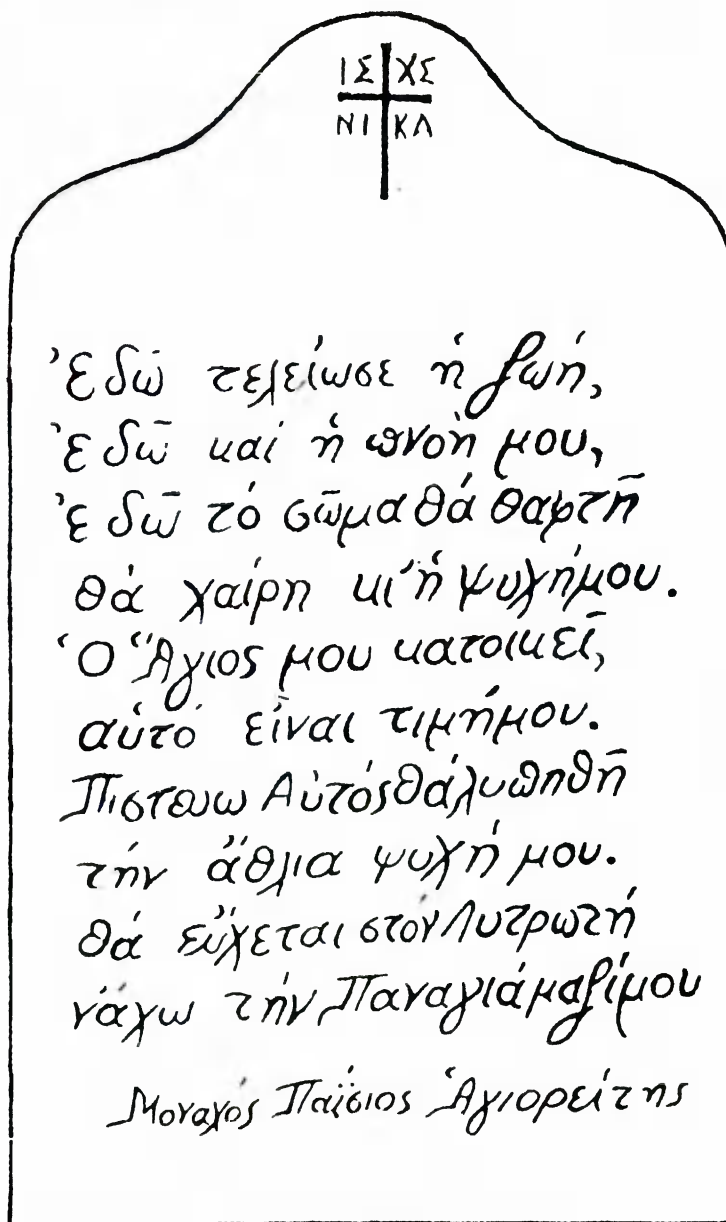 ΙΣ ΧΣ
ΝΙ ΚΑ
Ἐδῶ τελείωσε ἡ ζωή,
ἐδῶ καί ἡ πνοή μου,
ἐδῶ τό σῶμα θά θαφτῆ
θά χαίρη κι' ἡ ψυχή μου.
Ὁ Ἅγιος μου κατοικεῖ,
αὐτό εἶναι τιμή μου.
Πιστεύω Αὐτός θά λυπηθῆ
τήν ἄθλια ψυχή μου.
θά εὔχεται στόν Λυτρωτή
νἄχω τήν Παναγιά μαζί μου
Μοναχός Παΐσιος Ἁγιορείτης